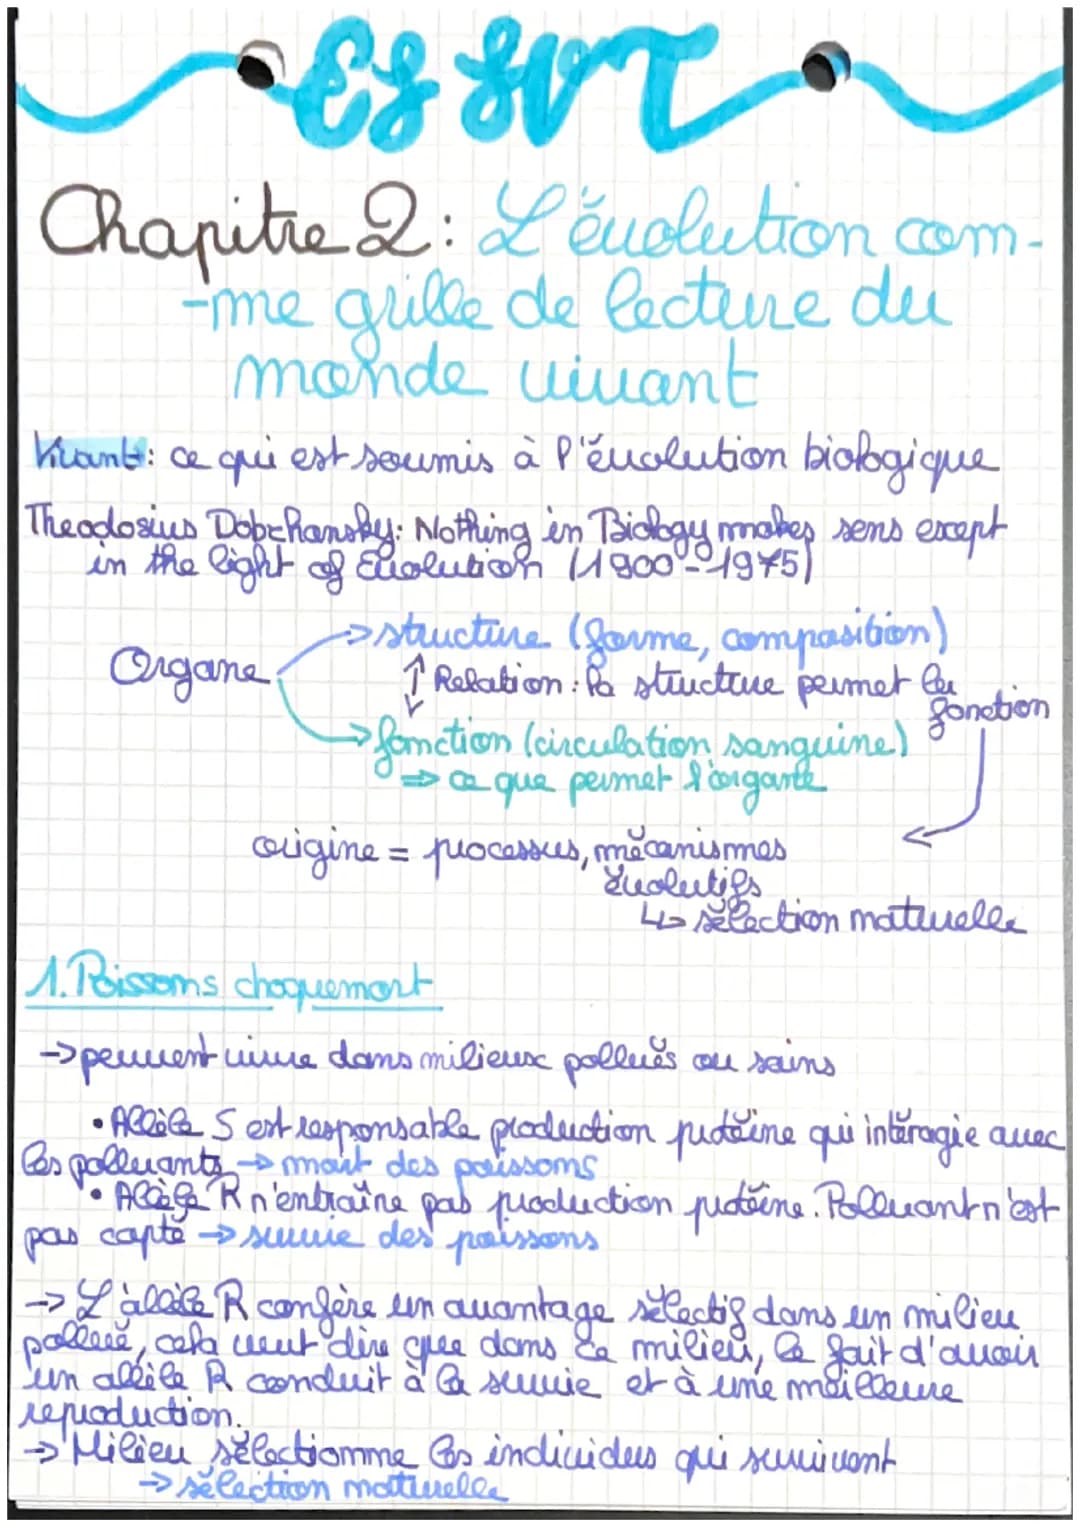 ES SVT
Chapitre 2: L'évolution com-
-me grille de lecture du
monde vivant
Vivant: ce qui est soumis à l'évolution biologique
Theodosius Dobzhansky: Nothing in Biology makes sens except
in the light of Evolution (1900-1975)
→ structure (forme, composition)
Organe
↕ Relation: la structure permet la
fonction
→ fonction (circulation sanguine)
⇒ ce que permet l'organe
origine = processus, mécanismes
évolutifs
↳ sélection naturelle
1. Poissons choquemort
→ peuvent vivre dans milieux pollués ou sains
• Allèle S est responsable production protéine qui intéragie avec
les polluants → mort des poissons
• Allèle R n'entraîne pas production protéine. Polluant n'est
pas capté → survie des poissons
→ L'allèle R confère un avantage sélectif dans un milieu
pollué, cela veut dire que dans ce milieu, le fait d'avoir
un allèle R conduit à la survie et à une meilleure
reproduction.
→ Milieu sélectionne les individus qui survivent
→ sélection naturelle